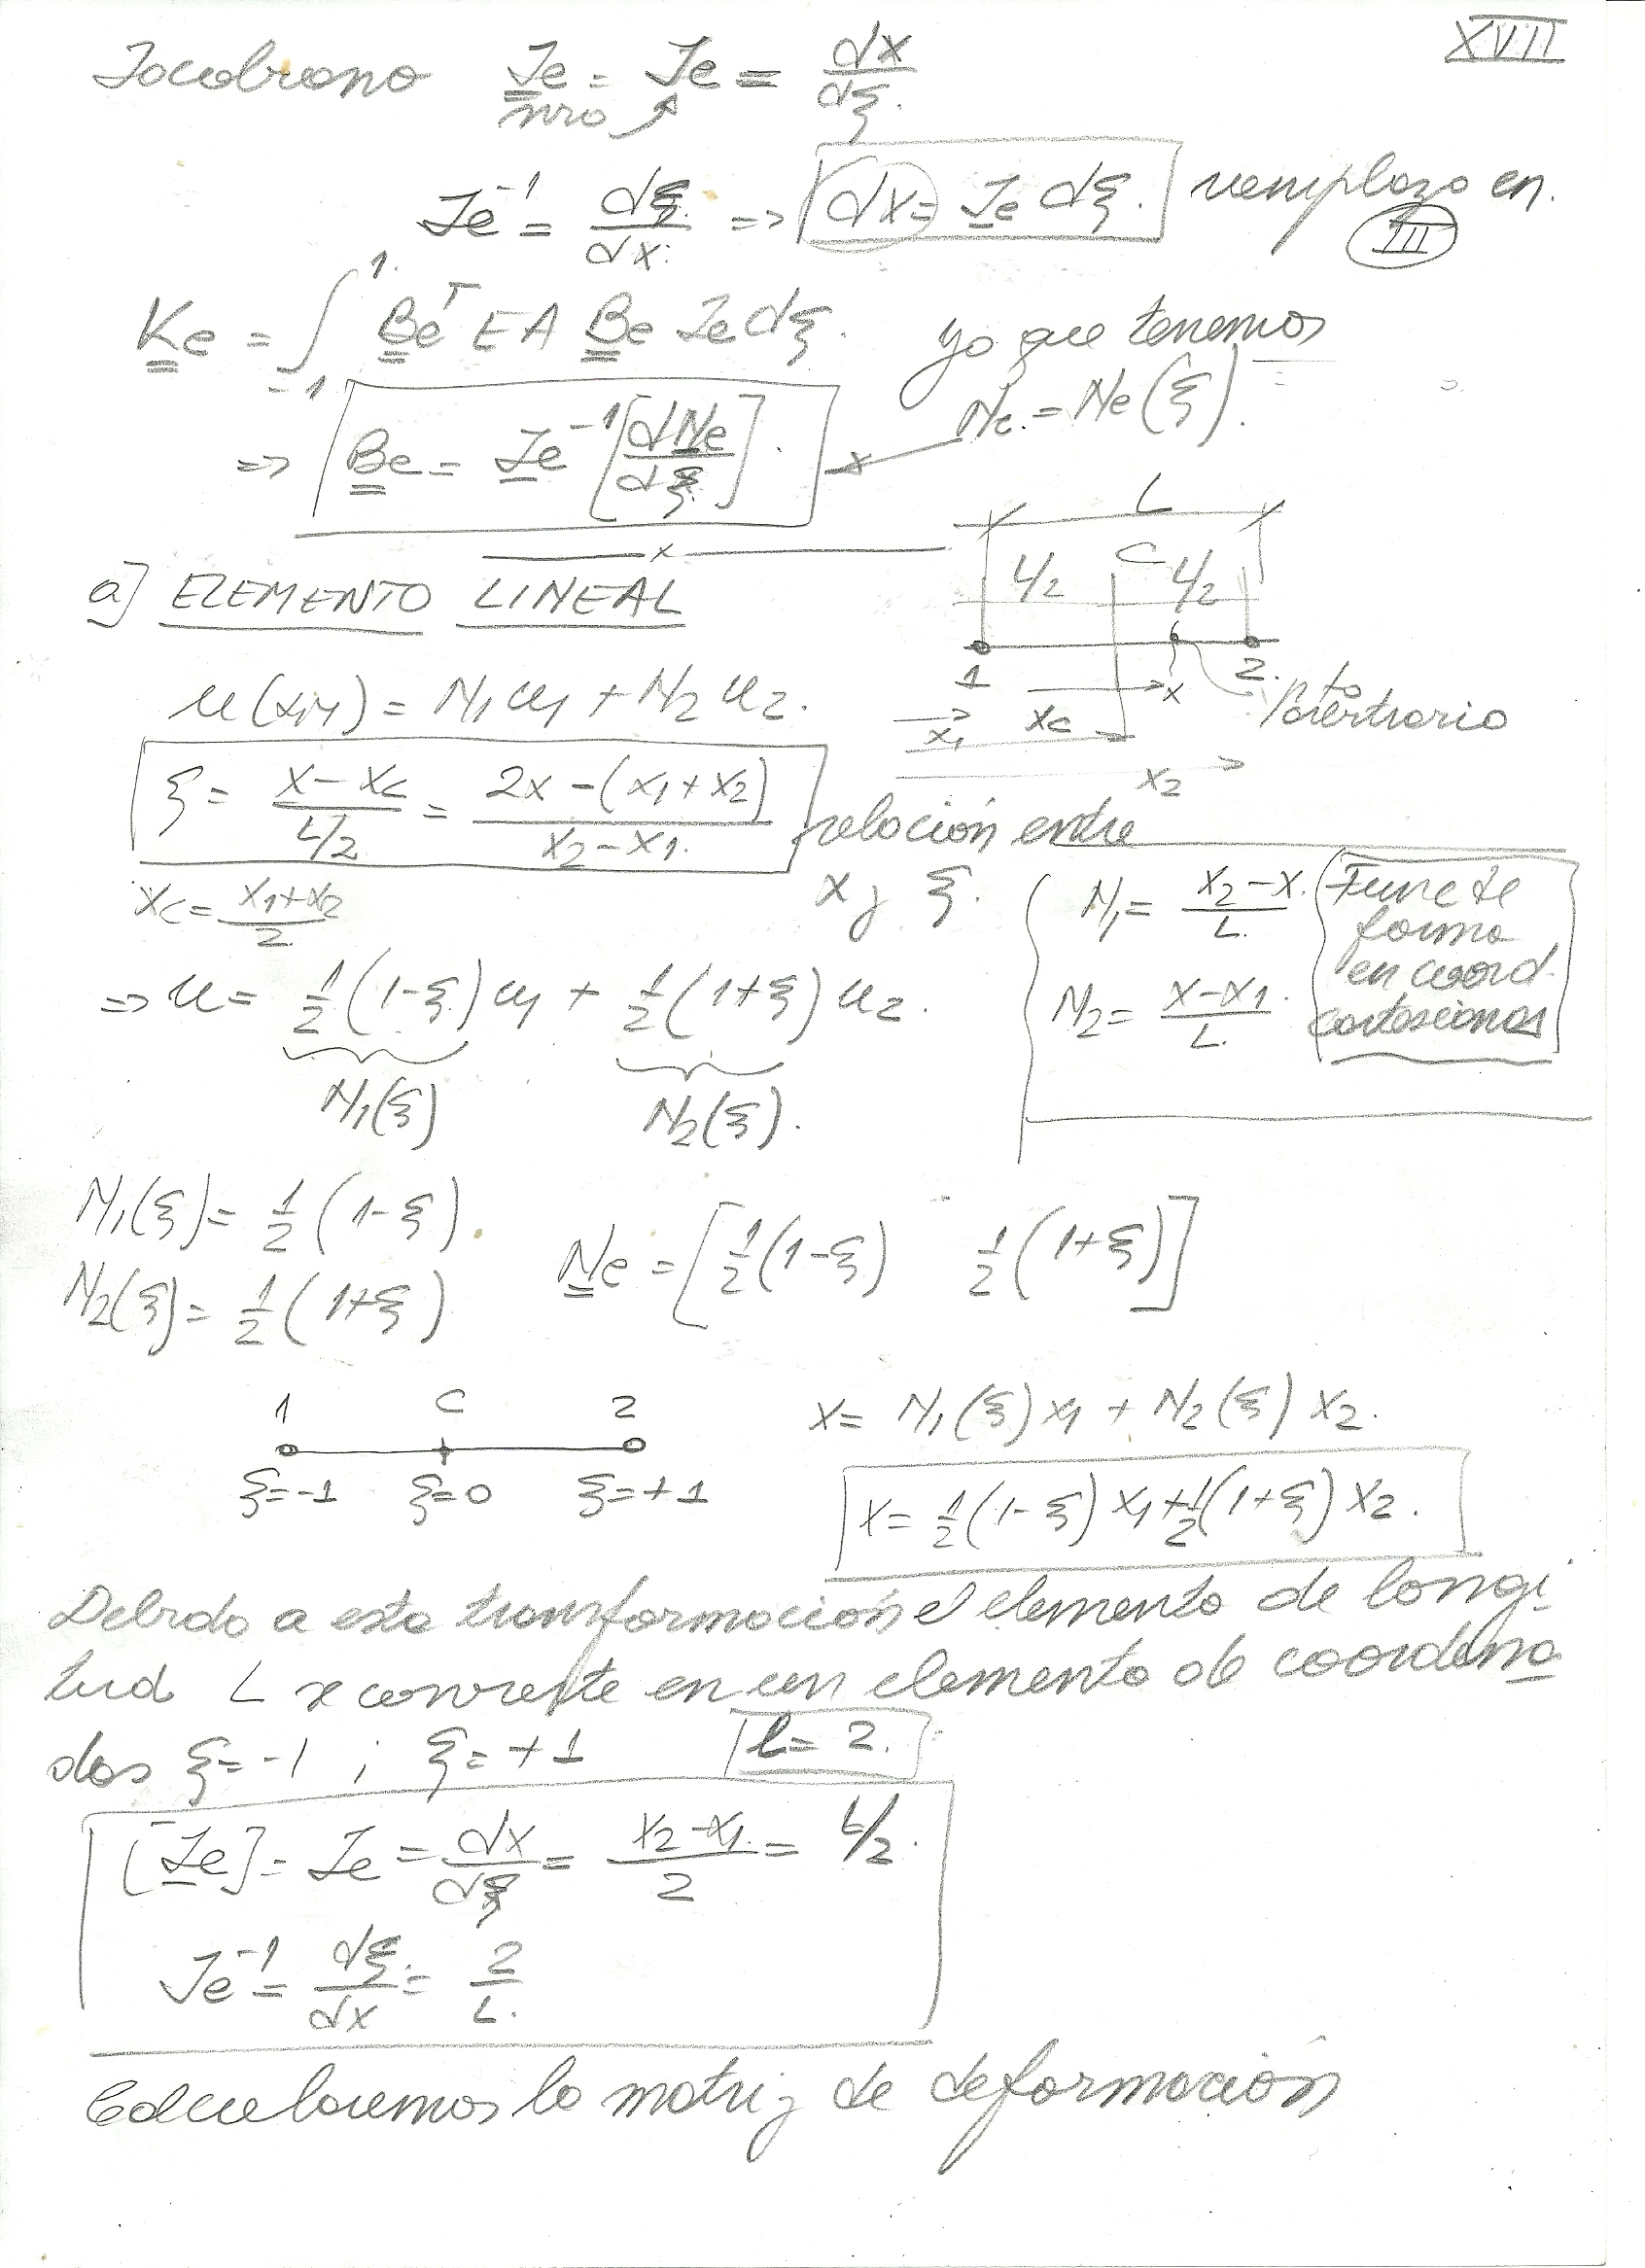 XVII
Jacobiano J̲e = Je = dx/dξ.
nro ↑
Je⁻¹ = dξ/dx. => dx = J̲e dξ. remplazo en.
III
K̳e = ∫₋₁¹ B̳eᵀ EA B̳e Je dξ. ya que tenemos
Ne. = Ne(ξ).
=> B̳e = J̲e⁻¹ [dN̲e/dξ].
x
L
a] ELEMENTO LINEAL
L/2 C L/2
1 x 2. pto
arbitrario
x₁ xc
x₂
u(x,y) = N₁u₁ + N₂u₂.
ξ = (x - xc)/(L/2) = (2x - (x₁+x₂))/(x₂-x₁). relación entre
x y ξ.
xc = (x₁+x₂)/2
N₁ = (x₂-x)/L. Func de
forma
en coord.
cartesianas
N₂ = (x-x₁)/L.
=> u = ½(1-ξ)u₁ + ½(1+ξ)u₂.
N₁(ξ) N₂(ξ).
N₁(ξ) = ½(1-ξ).
N₂(ξ) = ½(1+ξ)
N̳e = [½(1-ξ) ½(1+ξ)]
1 C 2
ξ=-1 ξ=0 ξ=+1
x = N₁(ξ)x₁ + N₂(ξ)x₂.
x = ½(1-ξ)x₁+½(1+ξ)x₂.
Debido a esta transformación el elemento de longi-
tud L se convierte en un elemento de coordena
das ξ=-1 ; ξ=+1 l=2.
[J̲e] = Je = dx/dξ = (x₂-x₁)/2 = L/2.
Je⁻¹ = dξ/dx = 2/L.
Calcularemos la matriz de deformación